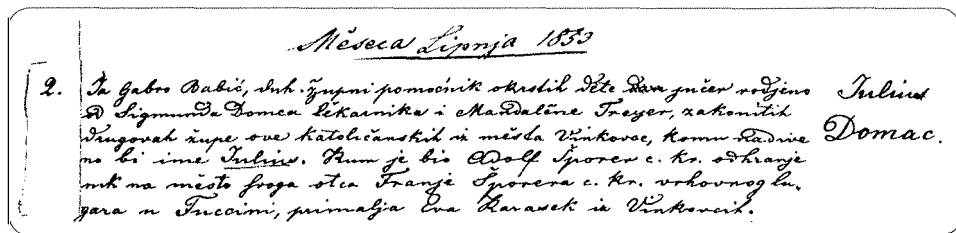 Měseca Lipnja 1853
2. Ja Gabro Babić, duh. župni pomoćnik okrstih děte jučer rodjeno
od Sigmunda Domca lěkarnika i Mandalěne Freyer, zakonitih
drugovah župe ove katoličanskih iz města Vinkovce, komu nadive
no bi ime Julius. Kum je bio Adolf Šporer c. kr. odhranje
nik na město svoga otca Franje Šporera c. kr. vrhovnog lu,
gara u Fuccini, primalja Eva Karasek iz Vinkovcih.
Julius
Domac.